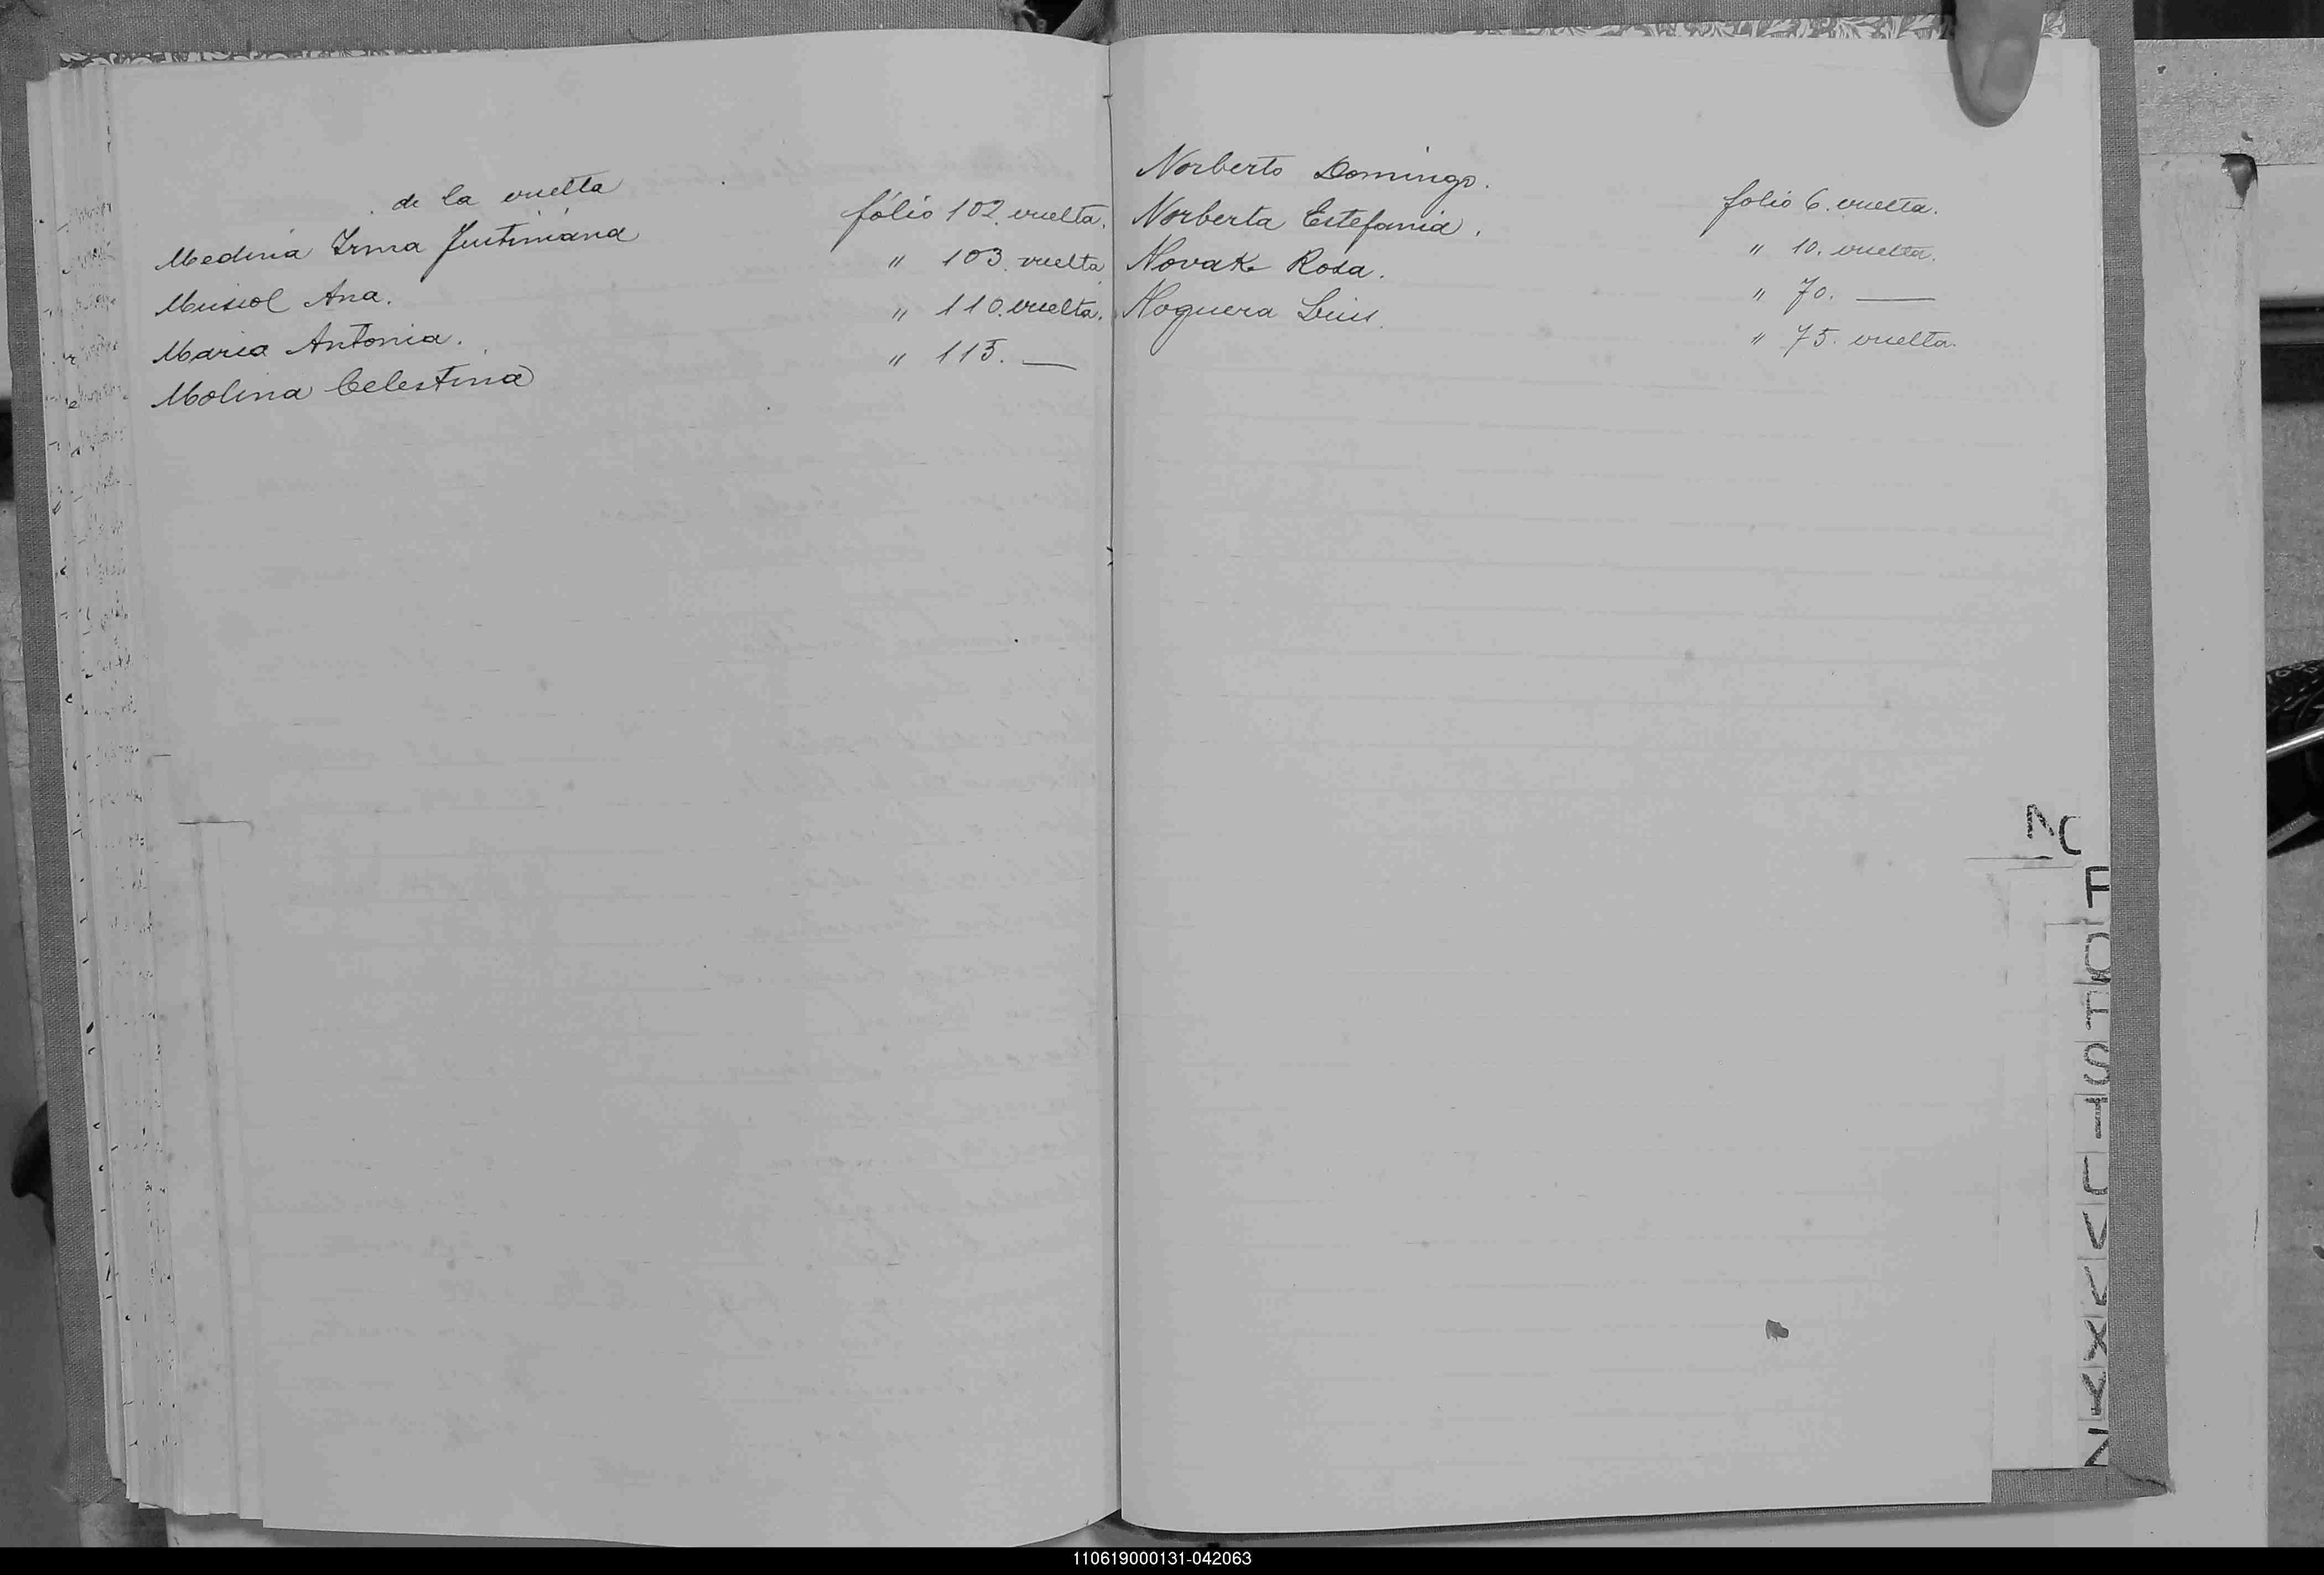 de la vuelta
Medina Irma Justiniana fólio 102 vuelta.
Musiol Ana. " 103. vuelta
Maria Antonia. " 110. vuelta.
Molina Celestina " 115. —
Norberto Domingo. folio 6. vuelta.
Norberta Estefania. " 10. vuelta.
Novak Rosa. " 70. —
Noguera Luis. " 75. vuelta.
N
110619000131-042063